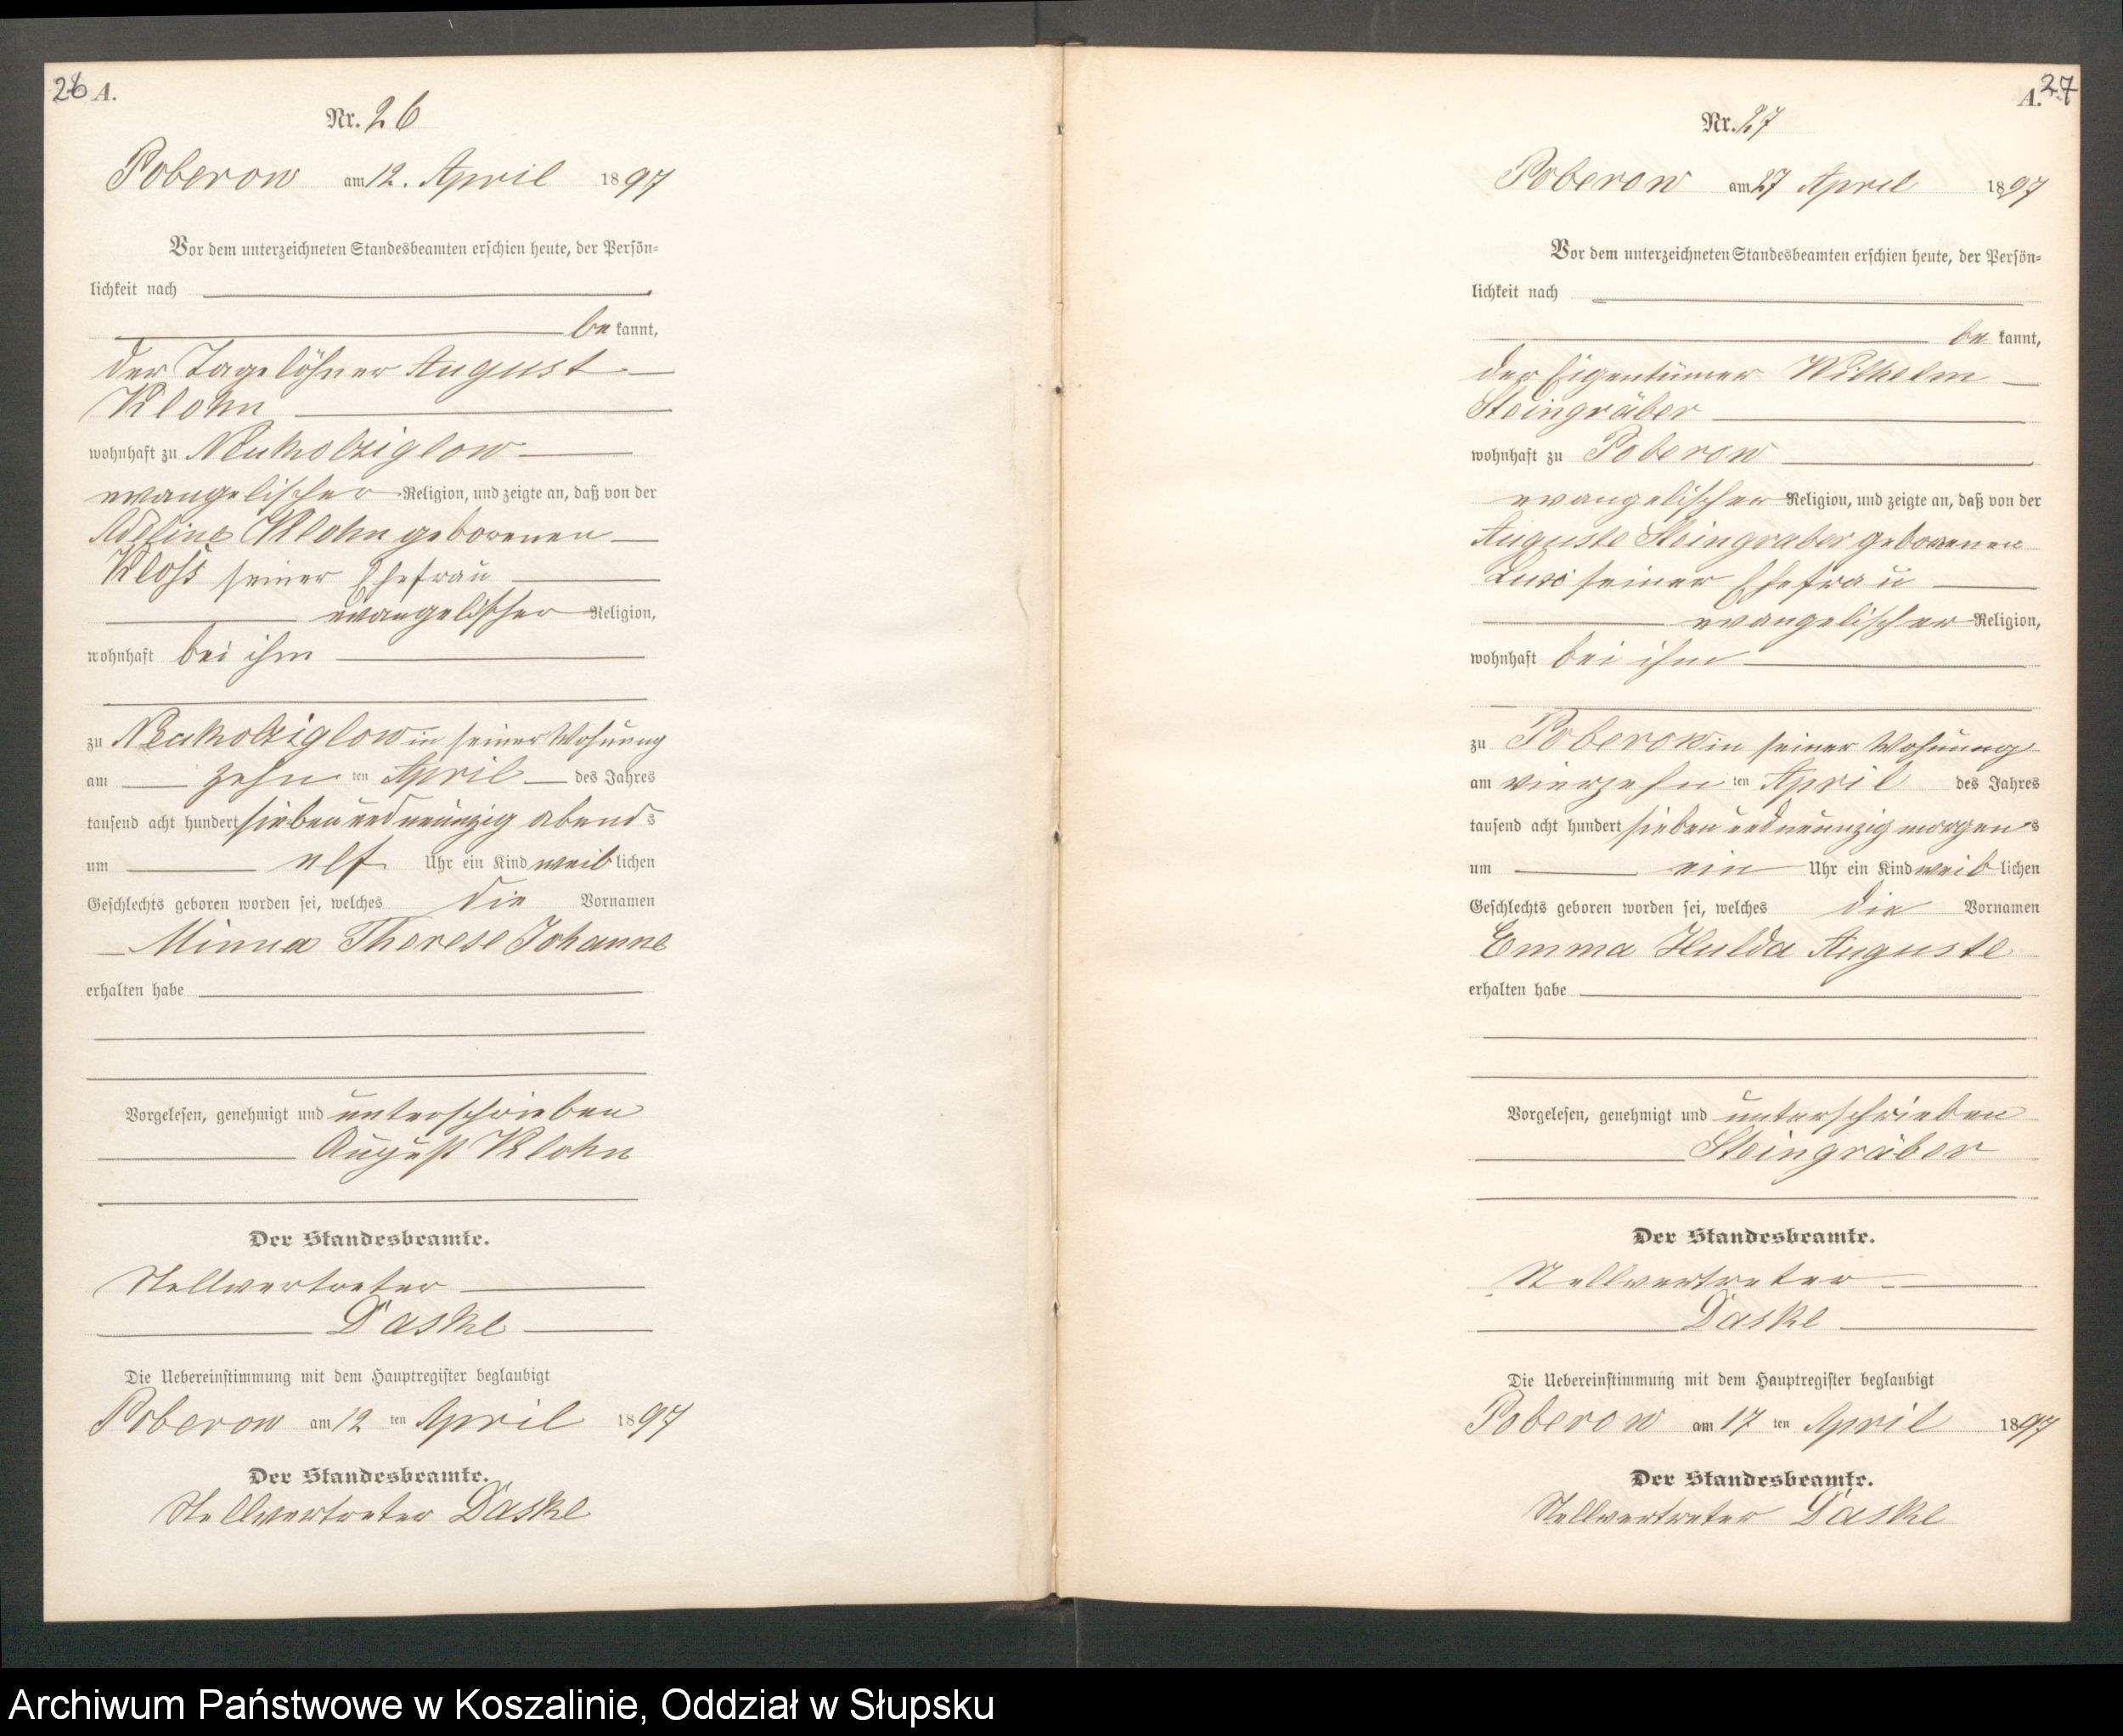 26 A.
Nr. 26
Poberow am 12. April 1897
Vor dem unterzeichneten Standesbeamten erschien heute, der Persön-
lichkeit nach
be kannt,
der Tagelöhner August
Klohn
wohnhaft zu Neukolziglow
evangelischer Religion, und zeigte an, daß von der
Adeline Klohn geborenen
Kloss seiner Ehefrau
evangelischer Religion,
wohnhaft bei ihm
zu Neukolziglow in seiner Wohnung
am zehn ten April des Jahres
tausend acht hundert siebenundneunzig abends
um elf Uhr ein Kind weiblichen
Geschlechts geboren worden sei, welches die Vornamen
Minna Therese Johanne
erhalten habe
Vorgelesen, genehmigt und unterschrieben
August Klohn
Der Standesbeamte.
Stellvertreter
Daske
Die Uebereinstimmung mit dem Hauptregister beglaubigt
Poberow am 12 ten April 1897
Der Standesbeamte.
Stellvertreter Daske
A. 27
Nr. 27
Poberow am 27 April 1897
Vor dem unterzeichneten Standesbeamten erschien heute, der Persön-
lichkeit nach
be kannt,
der Eigentümer Wilhelm
Steingräber
wohnhaft zu Poberow
evangelischer Religion, und zeigte an, daß von der
Auguste Steingräber geborenen
seiner Ehefrau
evangelischer Religion,
wohnhaft bei ihm
zu Poberow in seiner Wohnung
am vierzehn ten April des Jahres
tausend acht hundert siebenundneunzig morgens
um ein Uhr ein Kind weiblichen
Geschlechts geboren worden sei, welches die Vornamen
Emma Hulda Auguste
erhalten habe
Vorgelesen, genehmigt und unterschrieben
Steingräber
Der Standesbeamte.
Stellvertreter
Daske
Die Uebereinstimmung mit dem Hauptregister beglaubigt
Poberow am 17 ten April 1897
Der Standesbeamte.
Stellvertreter Daske
Archiwum Państwowe w Koszalinie, Oddział w Słupsku